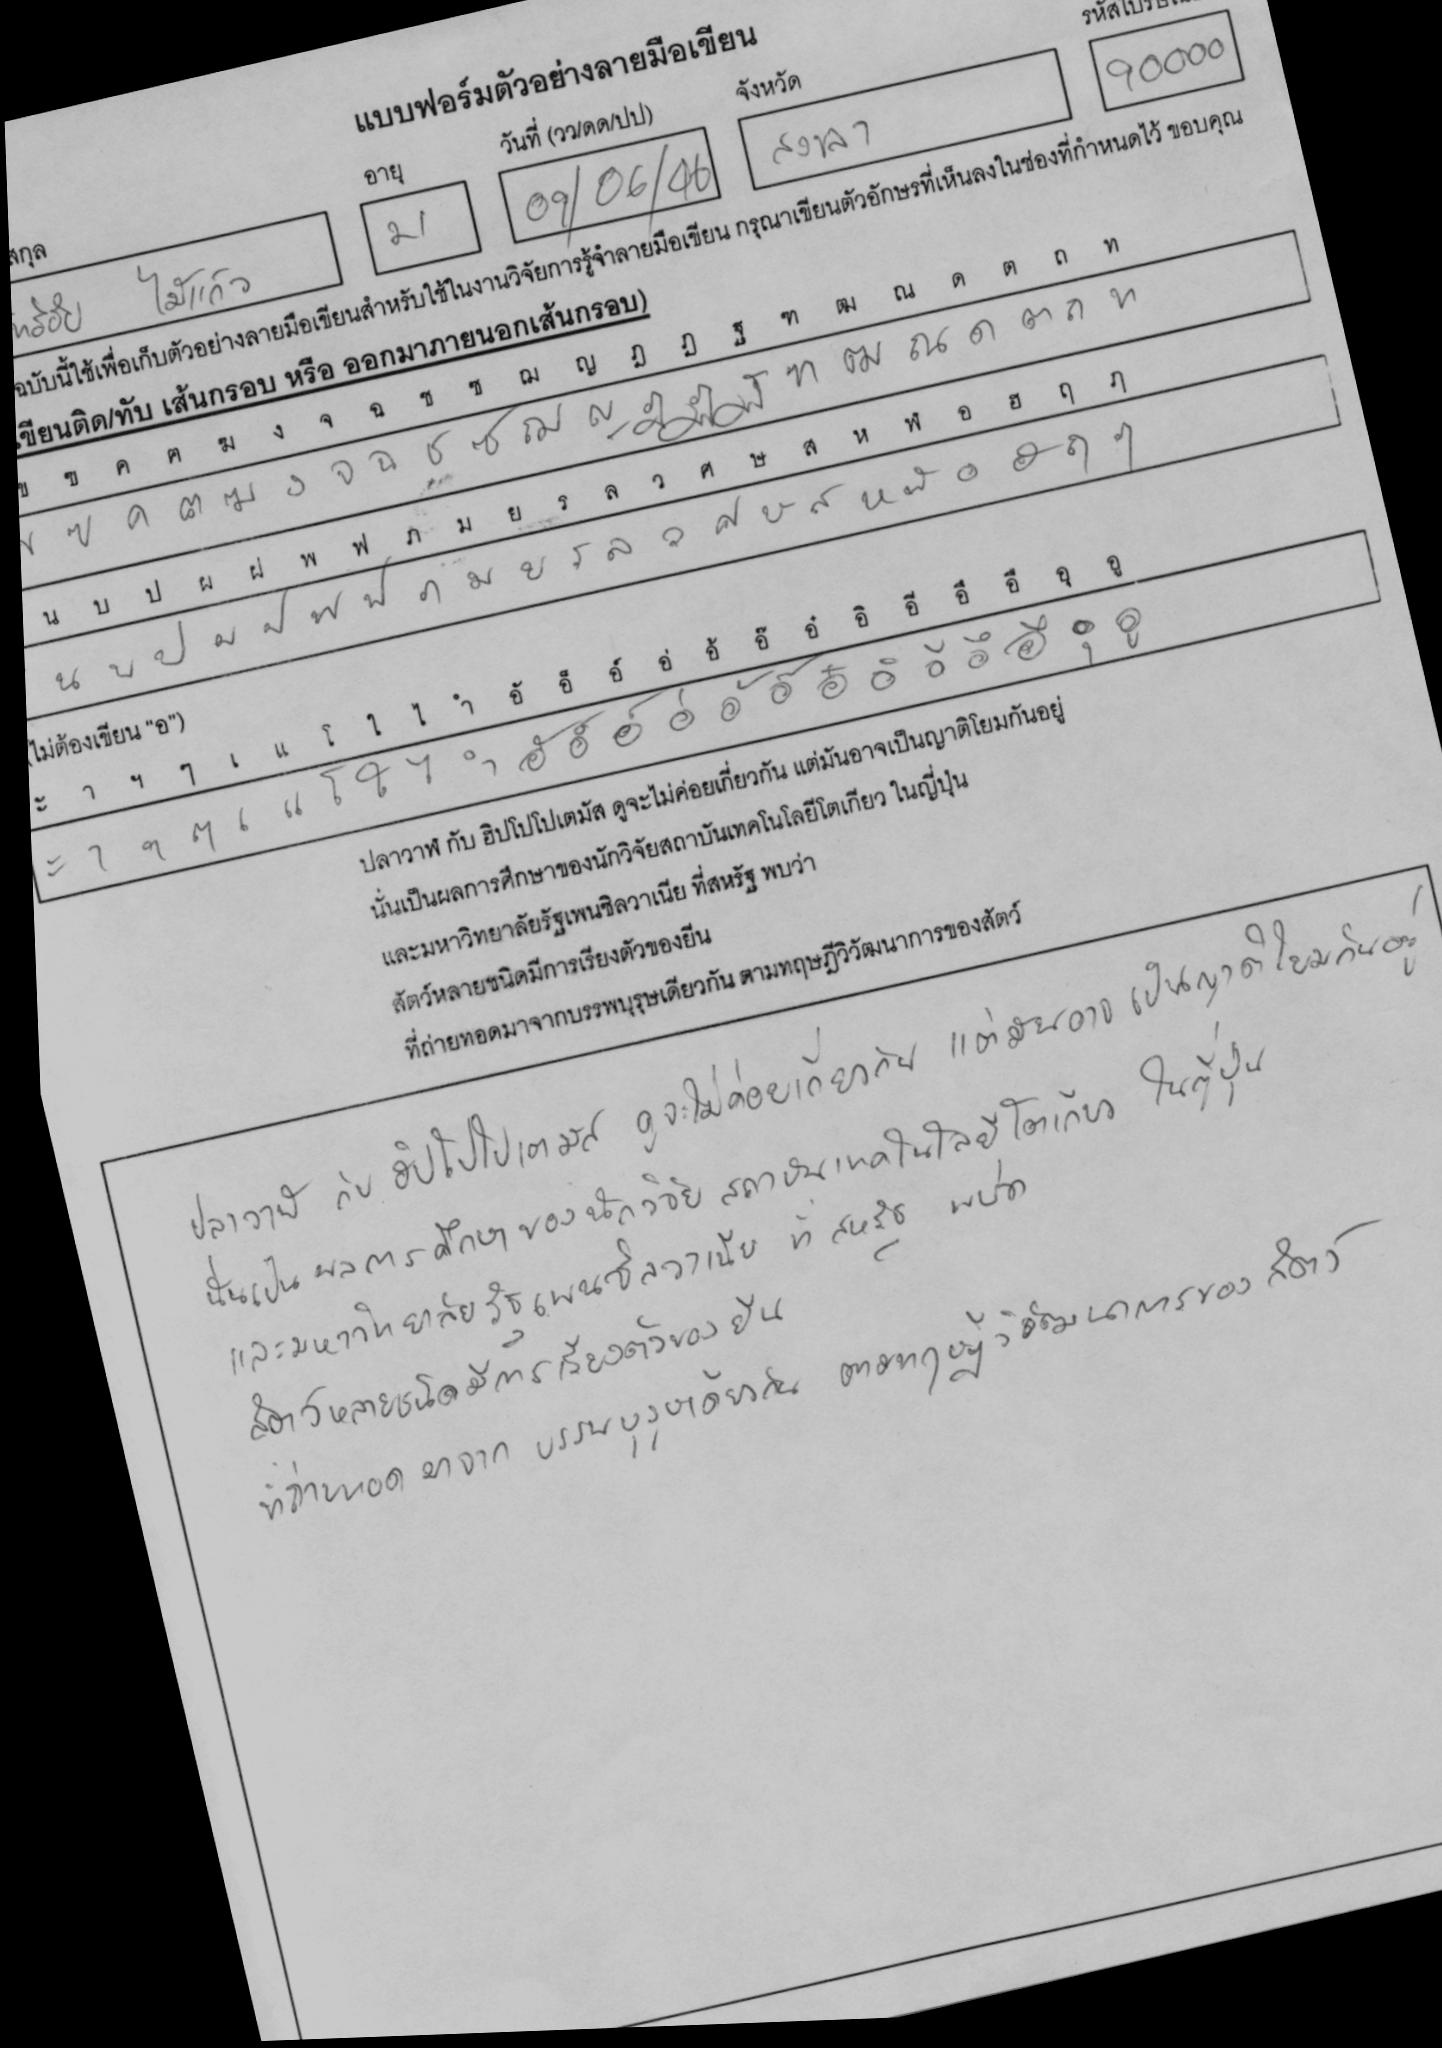 แบบฟอร์มตัวอย่างลายมือเขียน
สกุล อายุ วันที่ (วว/ดด/ปป) จังหวัด
ไม้แก้ว 09/06/46 สงขลา 90000
ฉบับนี้ใช้เพื่อเก็บตัวอย่างลายมือเขียนสำหรับใช้ในงานวิจัยการรู้จำลายมือเขียน กรุณาเขียนตัวอักษรที่เห็นลงในช่องที่กำหนดไว้ ขอบคุณ
เขียนติด/ทับ เส้นกรอบ หรือ ออกมาภายนอกเส้นกรอบ)
ข ฃ ค ฅ ฆ ง จ ฉ ช ซ ฌ ญ ฎ ฏ ฐ ฑ ฒ ณ ด ต ถ ท
ข ฃ ค ฅ ฆ ง จ ฉ ช ซ ฌ ญ ฎ ฏ ฐ ฑ ฒ ณ ด ต ถ ท
น บ ป ผ ฝ พ ฟ ภ ม ย ร ล ว ศ ษ ส ห ฬ อ ฮ ฤ ภ
น บ ป ผ ฝ พ ฟ ภ ม ย ร ล ว ศ ษ ส ห ฬ อ ฮ ฤ ๅ
(ไม่ต้องเขียน "อ")
ะ า ฯ ๆ เ แ โ ใ ไ ำ อั อ็ อ์ อ่ อ้ อ๊ อ๋ อิ อี อึ อื อุ อู
ะ า ฯ ๆ เ แ โ ใ ไ ำ อั อ็ อ์ อ่ อ้ อ๊ อ๋ อิ อี อึ อื อุ อู
ปลาวาฬ กับ ฮิปโปโปเตมัส ดูจะไม่ค่อยเกี่ยวกัน แต่มันอาจเป็นญาติโยมกันอยู่
นั่นเป็นผลการศึกษาของนักวิจัยสถาบันเทคโนโลยีโตเกียว ในญี่ปุ่น
และมหาวิทยาลัยรัฐเพนซิลวาเนีย ที่สหรัฐ พบว่า
สัตว์หลายชนิดมีการเรียงตัวของยีน
ที่ถ่ายทอดมาจากบรรพบุรุษเดียวกัน ตามทฤษฎีวิวัฒนาการของสัตว์
ปลาวาฬ กับ ฮิปโปโปเตมัส ดูจะไม่ค่อยเกี่ยวกัน แต่มันอาจ เป็นญาติโยมกันอยู่
นั่นเป็น ผลการศึกษา ของนักวิจัย สถาบันเทคโนโลยีโตเกียว ในญี่ปุ่น
และมหาวิทยาลัยรัฐเพนซิลวาเนีย ที่ สหรัฐ พบว่า
สัตว์หลายชนิดมีการเรียงตัวของ ยีน
ที่ถ่ายทอด มาจาก บรรพบุรุษเดียวกัน ตามทฤษฎีวิวัฒนาการของ สัตว์